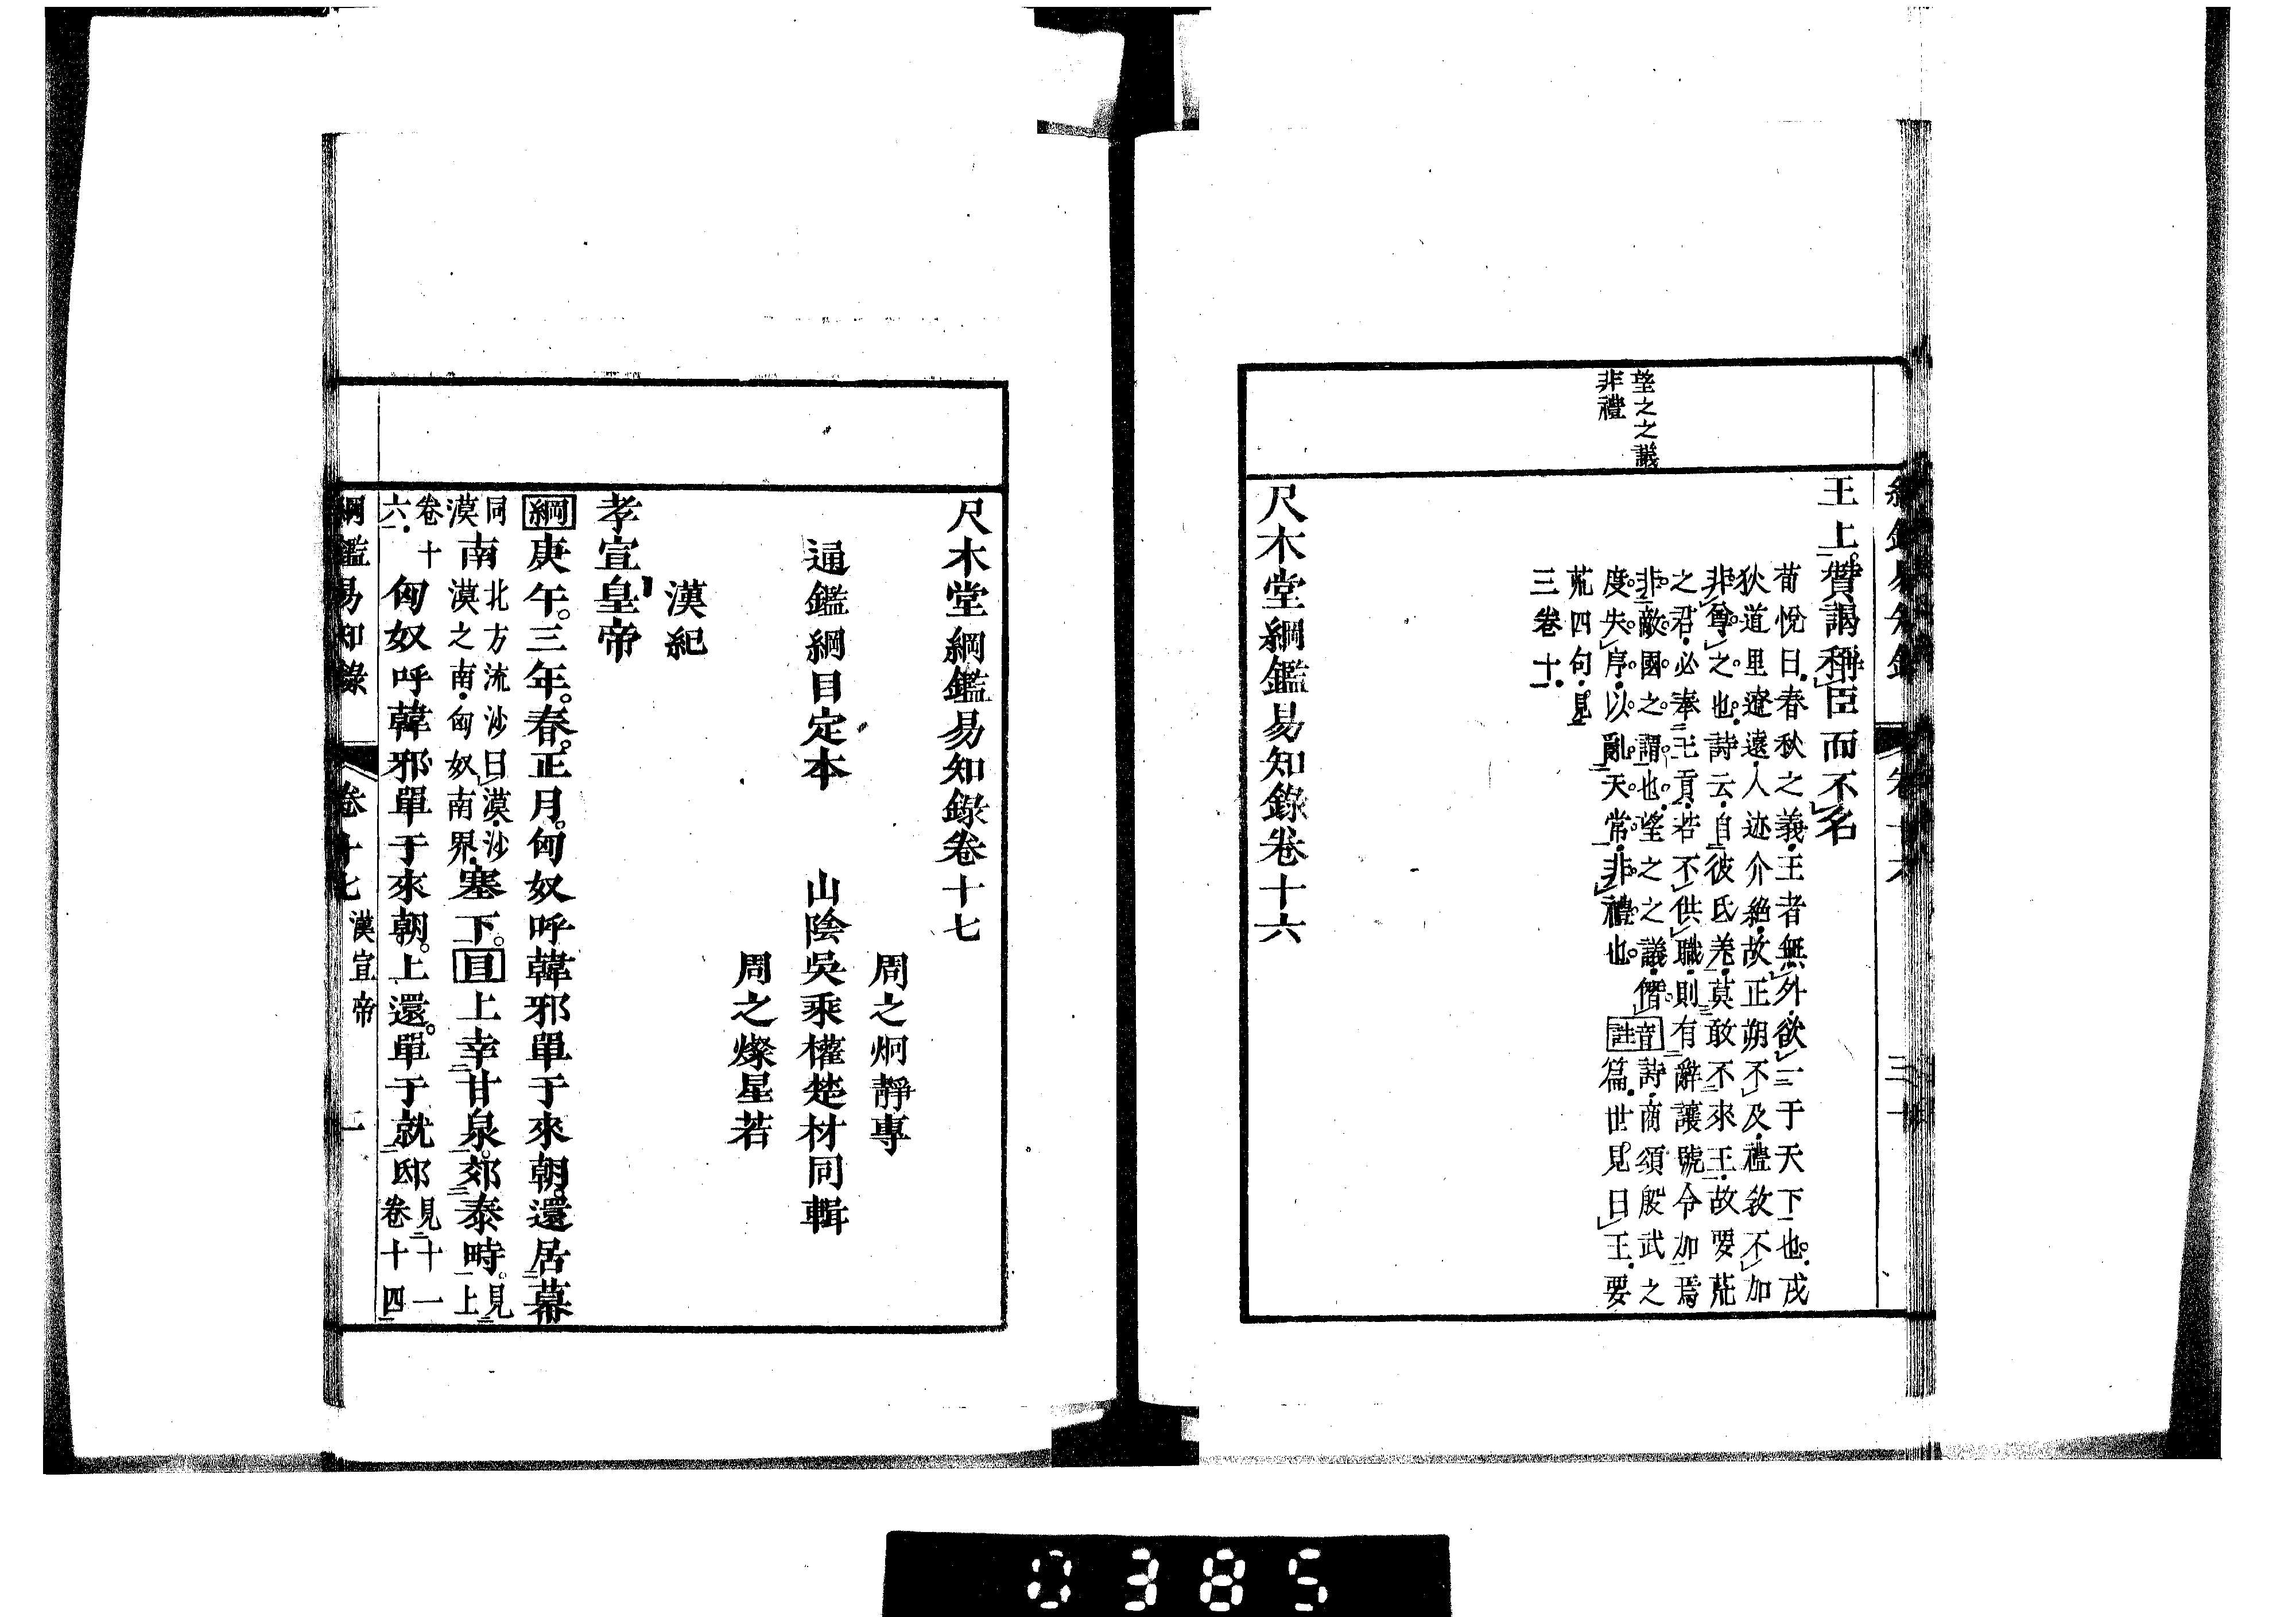 綱鑑易知錄 卷十六
望之之議
非禮
王上。贊謁稱臣而不名
荀悅曰。春秋之義。王者無外。欲一于天下也。戎
狄道里遼遠。人迹介絕。故正朔不及。禮敎不加
非尊之也。詩云。自彼氐羌。莫敢不來王。故要荒
之君。必奉王貢。若不供職。則有辭讓號令加焉
非敵國之謂也。望之之議。僭音詩。商須殷武之
度失序。以亂天常。非禮也。註篇。世見曰王。要
荒四句。見
三卷十
尺木堂綱鑑易知錄卷十六
尺木堂綱鑑易知錄卷十七
周之炯靜專
通鑑綱目定本 山陰吳乘權楚材同輯
周之燦星若
漢紀
孝宣皇帝
綱庚午。三年。春。正月。匈奴呼韓邪單于來朝。還居幕
南北方流沙曰漠。沙漠之南。匈奴南界。塞下。目上幸甘泉。郊泰畤。見上
同漠卷十六。匈奴呼韓邪單于來朝。上還。單于就邸見十一卷十四
綱鑑易知錄 卷十七 漢宣帝 一